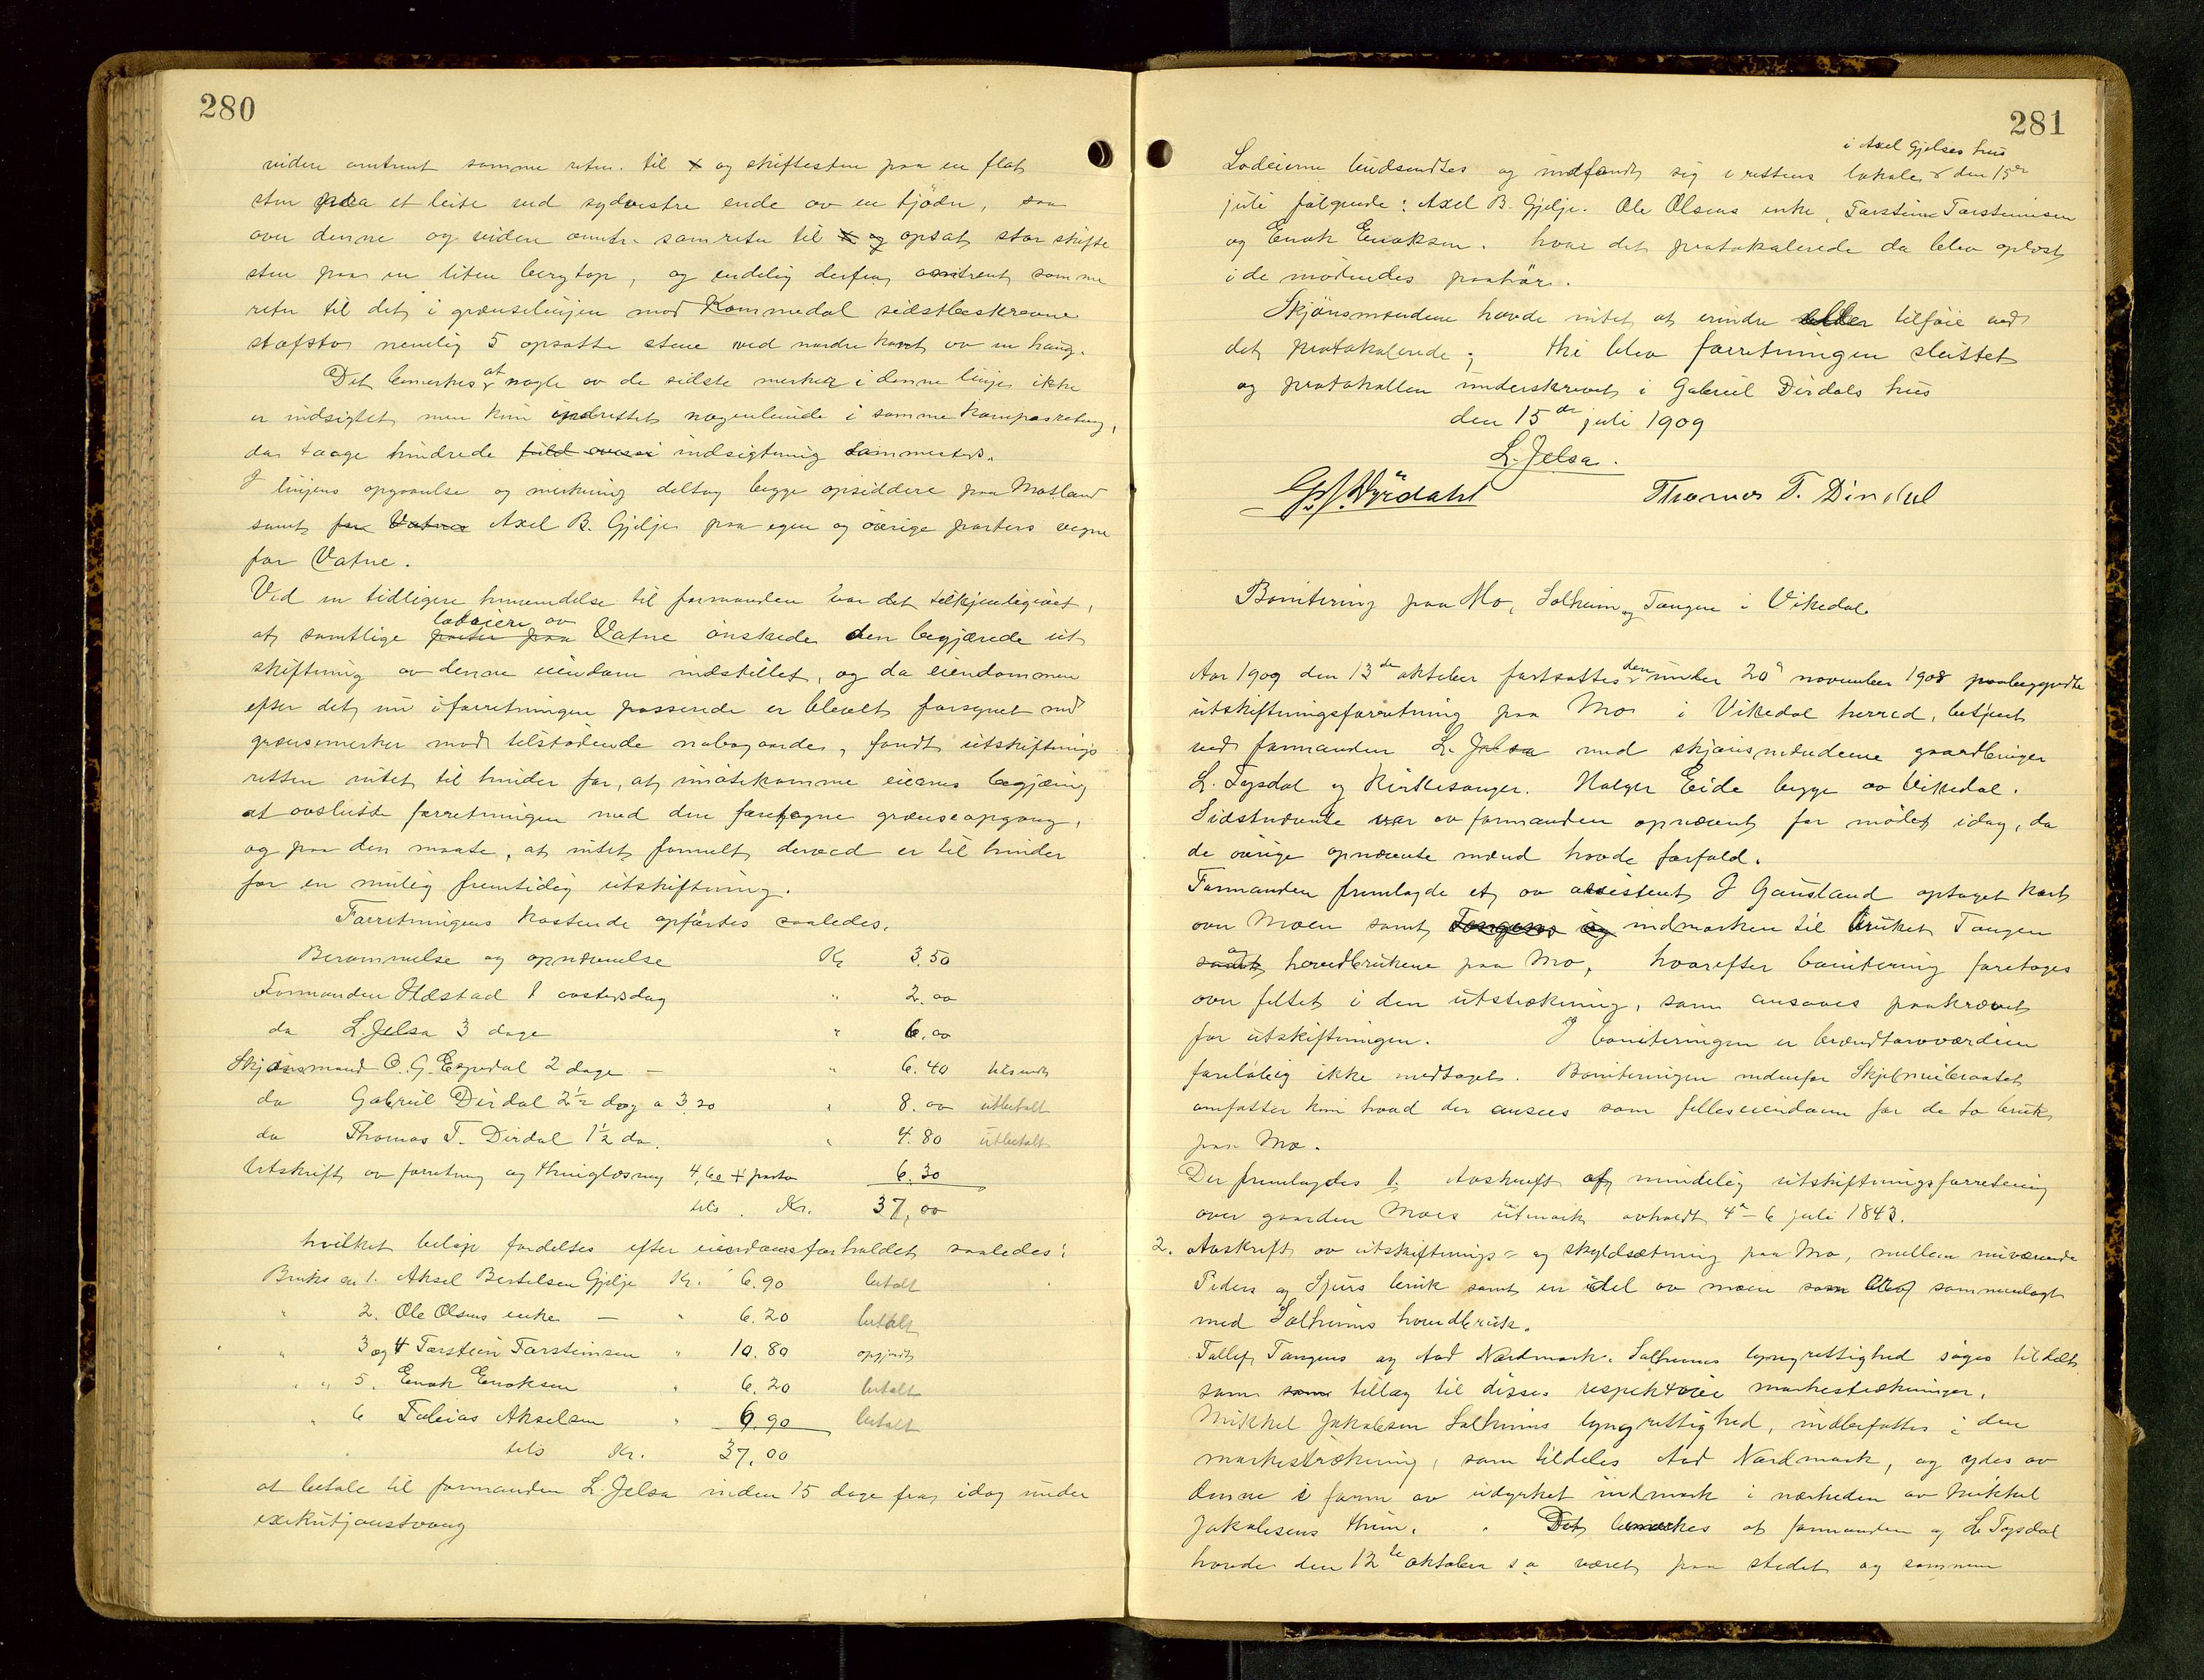 280
videre omtrent samme retn. til x og skiftesten paa en flat
sten paa et leite ved sydvestre ende av en tjödn, saa
over denne og videre omtr. sam retn til x og opsat stor skifte
sten paa en liten bergtop, og endelig derfra omtrent samme
retn til det i grænselinjen mod Kommedal sidstbeskrevne
stafsto nemlig 5 opsatte stene ved nordre kant av en haug.
Det bemerkes at nogle av de sidste merker i denne linje ikke
er indsigtet men kun indrettet nogenlunde i samme kompasretning,
da taage hindrede indsigtning sammesteds.
I linjens opgaaelse og merkning deltog begge opsiddere paa Motland
samt for Vatne Axel B. Gjelje paa egne og övrige parters vegne
for Vatne.
Ved en tidligere henvendelse til formanden var det tilkjendegivet,
at samtlige parter paa lodeiere av Vatne önskede den begjærede ut
skiftning av denne eiendom indstillet, og da eiendommen
efter det nu i forretningen passerede er blevet forsynet med
grænsemerker mod tilstödende nabogaarde, fandt utskiftnings
retten intet til hinder for, at imötekomme eiernes begjæring
at avslutte forretningen med den foretagne grænseopgang,
og paa den maate, at intet formelt derved er til hinder
for en mulig fremtidig utskiftning.
Forretningens kostende opförtes saaledes.
Berammelse og opnævnelse Kr 3.50
Formanden Hæstad 1 " 2.00
do L. Jelsa 3 dage " 6.00
Skjönsmand O. G. Espedal 2 dage — " 6.40 tilsendt
do Gabriel Dirdal 2½ dag a 3.20 " 8.00 utbetalt
do Thomas T. Dirdal 1½ do. " 4.80 utbetalt
Utskrift av forretning og thinglæsning 4,60 + porto 6.30
tils. Kr. 37,00
hvilket belöp fordeltes efter eiendomsforholdet saaledes:
Bruks nr 1. Aksel Bertelsen Gjelje Kr. 6.90 betalt
" 2. Ole Olsens enke — " 6.20 betalt
" 3 og 4 Torstein Torsteinsen " 10.80 opgjordt
" " 5. Enok Enoksen " 6.20 betalt
" 6 Tobias Akselsen " 6.90 betalt
tils Kr. 37.00
at betale til formanden L. Jelsa inden 15 dage fra idag under
exekutjonstvang
281
i Axel Gjeljes hus
Lodeierne budsendtes og indfandt sig i rettens lokale den 15de
juli fölgende: Axel B. Gjelje. Ole Olsens enke, Torstein Torsteinsen
og Enok Enoksen. hvor det protokolerede da blev oplæst
i de mödendes paahör.
Skjönsmændene havde intet at erindre eller tilföie ved
det protokolerede; thi blev forretningen sluttet
og protokollen underskrevet i Gabriel Dirdals hus
den 15de juli 1909
L. Jelsa.
G. J. Dyrdahl Thomas T. Dirdal
Bonitering paa Mo, Solheim og Tangen i Vikedal.
Aar 1909 den 13de oktober fortsattes den under 20de november 1908 paabegyndte
utskiftningsforretning paa Mo i Vikedal herred, betjent
ved formanden L. Jelsa med skjönsmændene gaardbruger
L. Tysdal og Kirkesanger. Holger Eide begge av Vikedal.
Sidstnævnte var av formanden opnævnt for mödet idag, da
de övrige opnævnte mænd havde forfald.
Formanden fremlagde et av assistent J Gausland optaget kart
over Moen samt Tangens og indmarken til bruket Tangen
samt og hovedbrukene paa Mo, hvorefter bonitering foretoges
over feltet i den utstrækning, som ansaaes paakrævet
for utskiftningen. I boniteringen er brændtorvværdien
forelöbig ikke medtaget. Boniteringen nedenfor
omfatter kun hvad der ansees som felleseiendom for de to bruk
paa Mo.
Der fremlagdes 1. Avskrift af mindelig utskiftningsforretning
over gaarden Moes utmark avholdt 4de – 6 juli 1843.
2. Avskrift av utskiftnings- og skyldsætning paa Mo, mellem nuværende
Peders og Sjurs bruk samt en del av moen som blev sammenlagt
med Solheims hovedbruk.
Tollef Tangens og Aad Nordmark. Solheims lyngrettighed söges tildelt
som som tillæg til disses respektive markestrækninger.
Mikkel Jakobsen Solheims lyngrettighed, indbefattes i den
markestrækning, som tildeles Aad Nordmark, og ydes av
denne i form av udyrket indmark i nærheden av Mikkel
Jakobsens hum. Det bemerkes at formanden og L. Tysdal
havde den 12te oktober s.a. været paa stedet og sammen